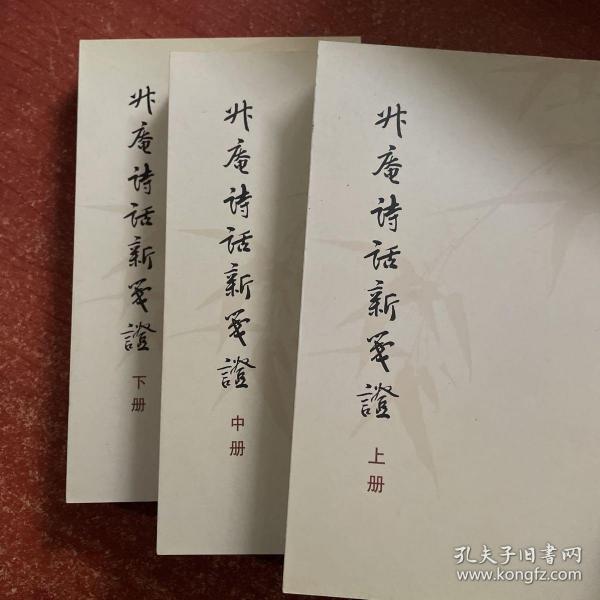 升庵诗话新笺證
下册
升庵诗话新笺證
中册
升庵诗话新笺證
上册
孔夫子旧书网
www.kongfz.com